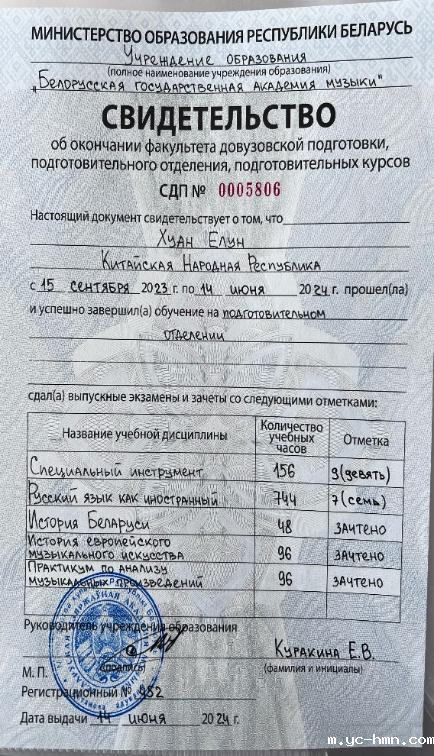 МИНИСТЕРСТВО ОБРАЗОВАНИЯ РЕСПУБЛИКИ БЕЛАРУСЬ
Учреждение образования
(полное наименование учреждения образования)
„Белорусская государственная академия музыки"
СВИДЕТЕЛЬСТВО
об окончании факультета довузовской подготовки,
подготовительного отделения, подготовительных курсов
СДП № 0005806
Настоящий документ свидетельствует о том, что
Хуан Елун
Китайская Народная Республика
с 15 сентября 2023 г. по 14 июня 2024 г. прошел(ла)
и успешно завершил(а) обучение на подготовительном
отделении
сдал(а) выпускные экзамены и зачеты со следующими отметками:
Название учебной дисциплины Количество учебных часов Отметка
Специальный инструмент 156 9 (девять)
Русский язык как иностранный 744 7 (семь)
История Беларуси 48 зачтено
История европейского
музыкального искусства 96 зачтено
Практикум по анализу
музыкальных произведений 96 зачтено
Руководитель учреждения образования
Куракина Е.В.
(подпись) (фамилия и инициалы)
М. П.
Регистрационный № 952
Дата выдачи 14 июня 2024 г.
m.yc-hmn.com